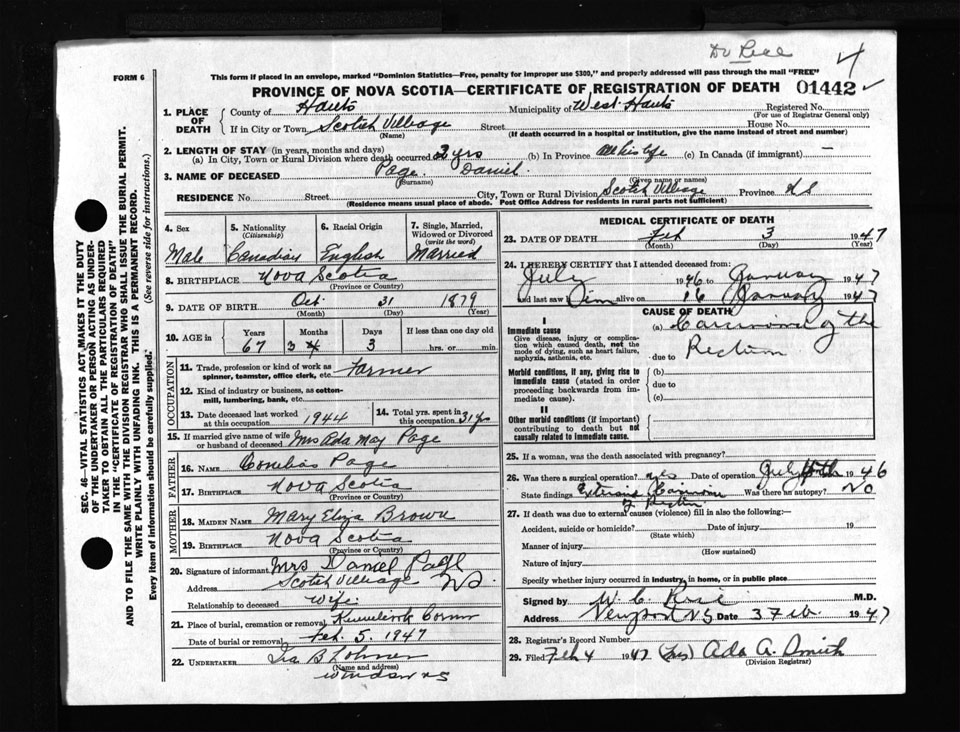 Dr Rice
4
FORM 6
This form if placed in an envelope, marked "Dominion Statistics—Free, penalty for improper use $300," and properly addressed will pass through the mail "FREE"
PROVINCE OF NOVA SCOTIA—CERTIFICATE OF REGISTRATION OF DEATH 01442
1. PLACE OF DEATH County of Hants Municipality of West Hants Registered No.
(For use of Registrar General only)
If in City or Town Scotch Village Street House No.
(Name) (If death occurred in a hospital or institution, give the name instead of street and number)
2. LENGTH OF STAY (in years, months and days)
(a) In City, Town or Rural Division where death occurred 2 yrs (b) In Province all his life (c) In Canada (if immigrant) —
3. NAME OF DECEASED Page Daniel
(Surname) (Given name or names)
RESIDENCE No. Street City, Town or Rural Division Scotch Village Province N S
(Residence means usual place of abode. Post Office Address for residents in rural parts not sufficient)
SEC. 46—VITAL STATISTICS ACT MAKES IT THE DUTY
OF THE UNDERTAKER OR PERSON ACTING AS UNDER-
TAKER TO OBTAIN ALL THE PARTICULARS REQUIRED
IN THE "CERTIFICATE OF REGISTRATION OF DEATH"
AND TO FILE THE SAME WITH THE DIVISION REGISTRAR WHO SHALL ISSUE THE BURIAL PERMIT.
WRITE PLAINLY WITH UNFADING INK. THIS IS A PERMANENT RECORD.
Every item of information should be carefully supplied. (See reverse side for instructions.)
4. Sex 5. Nationality (Citizenship) 6. Racial Origin 7. Single, Married, Widowed or Divorced (write the word)
Male Canadian English Married
8. BIRTHPLACE Nova Scotia
(Province or Country)
9. DATE OF BIRTH Oct. 31 1879
(Month) (Day) (Year)
10. AGE in Years Months Days If less than one day old
67 3 3 hrs. or min.
OCCUPATION
11. Trade, profession or kind of work as spinner, teamster, office clerk, etc. Farmer
12. Kind of industry or business, as cotton-mill, lumbering, bank, etc.
13. Date deceased last worked at this occupation 1944 14. Total yrs. spent in this occupation 31 yrs
15. If married give name of wife or husband of deceased Mrs Ada May Page
FATHER
16. NAME Cornelias Page
17. BIRTHPLACE Nova Scotia
(Province or Country)
MOTHER
18. MAIDEN NAME Mary Eliza Brown
19. BIRTHPLACE Nova Scotia
(Province or Country)
20. Signature of informant Mrs Daniel Page
Address Scotch Village N S.
Relationship to deceased Wife
21. Place of burial, cremation or removal Corner
Date of burial or removal Feb. 5. 1947
22. UNDERTAKER Ira B Lohnes
(Name and address)
Windsor NS
MEDICAL CERTIFICATE OF DEATH
23. DATE OF DEATH Feb 3 1947
(Month) (Day) (Year)
24. I HEREBY CERTIFY that I attended deceased from:
July 1946 to January 1947
and last saw him alive on 16 January 1947
CAUSE OF DEATH
I
Immediate cause (a) Carcinoma of the
Give disease, injury or complication which caused death, not the mode of dying, such as heart failure, asphyxia, asthenia, etc.
due to Rectum
Morbid conditions, if any, giving rise to immediate cause (stated in order proceeding backwards from immediate cause).
(b)
due to
(c)
II
Other morbid conditions (if important) contributing to death but not causally related to immediate cause.
25. If a woman, was the death associated with pregnancy?
26. Was there a surgical operation? yes Date of operation July 1946
State findings Extensive Carcinoma of Rectum Was there an autopsy? No
27. If death was due to external causes (violence) fill in also the following:—
Accident, suicide or homicide? Date of injury 19
(State which)
Manner of injury
(How sustained)
Nature of injury
Specify whether injury occurred in industry, in home, or in public place
Signed by W. C. Rice M.D.
Address Newport NS Date 3 Feb. 1947
28. Registrar's Record Number
29. Filed Feb 4 1947 (Mrs) Ada A. Smith
(Division Registrar)